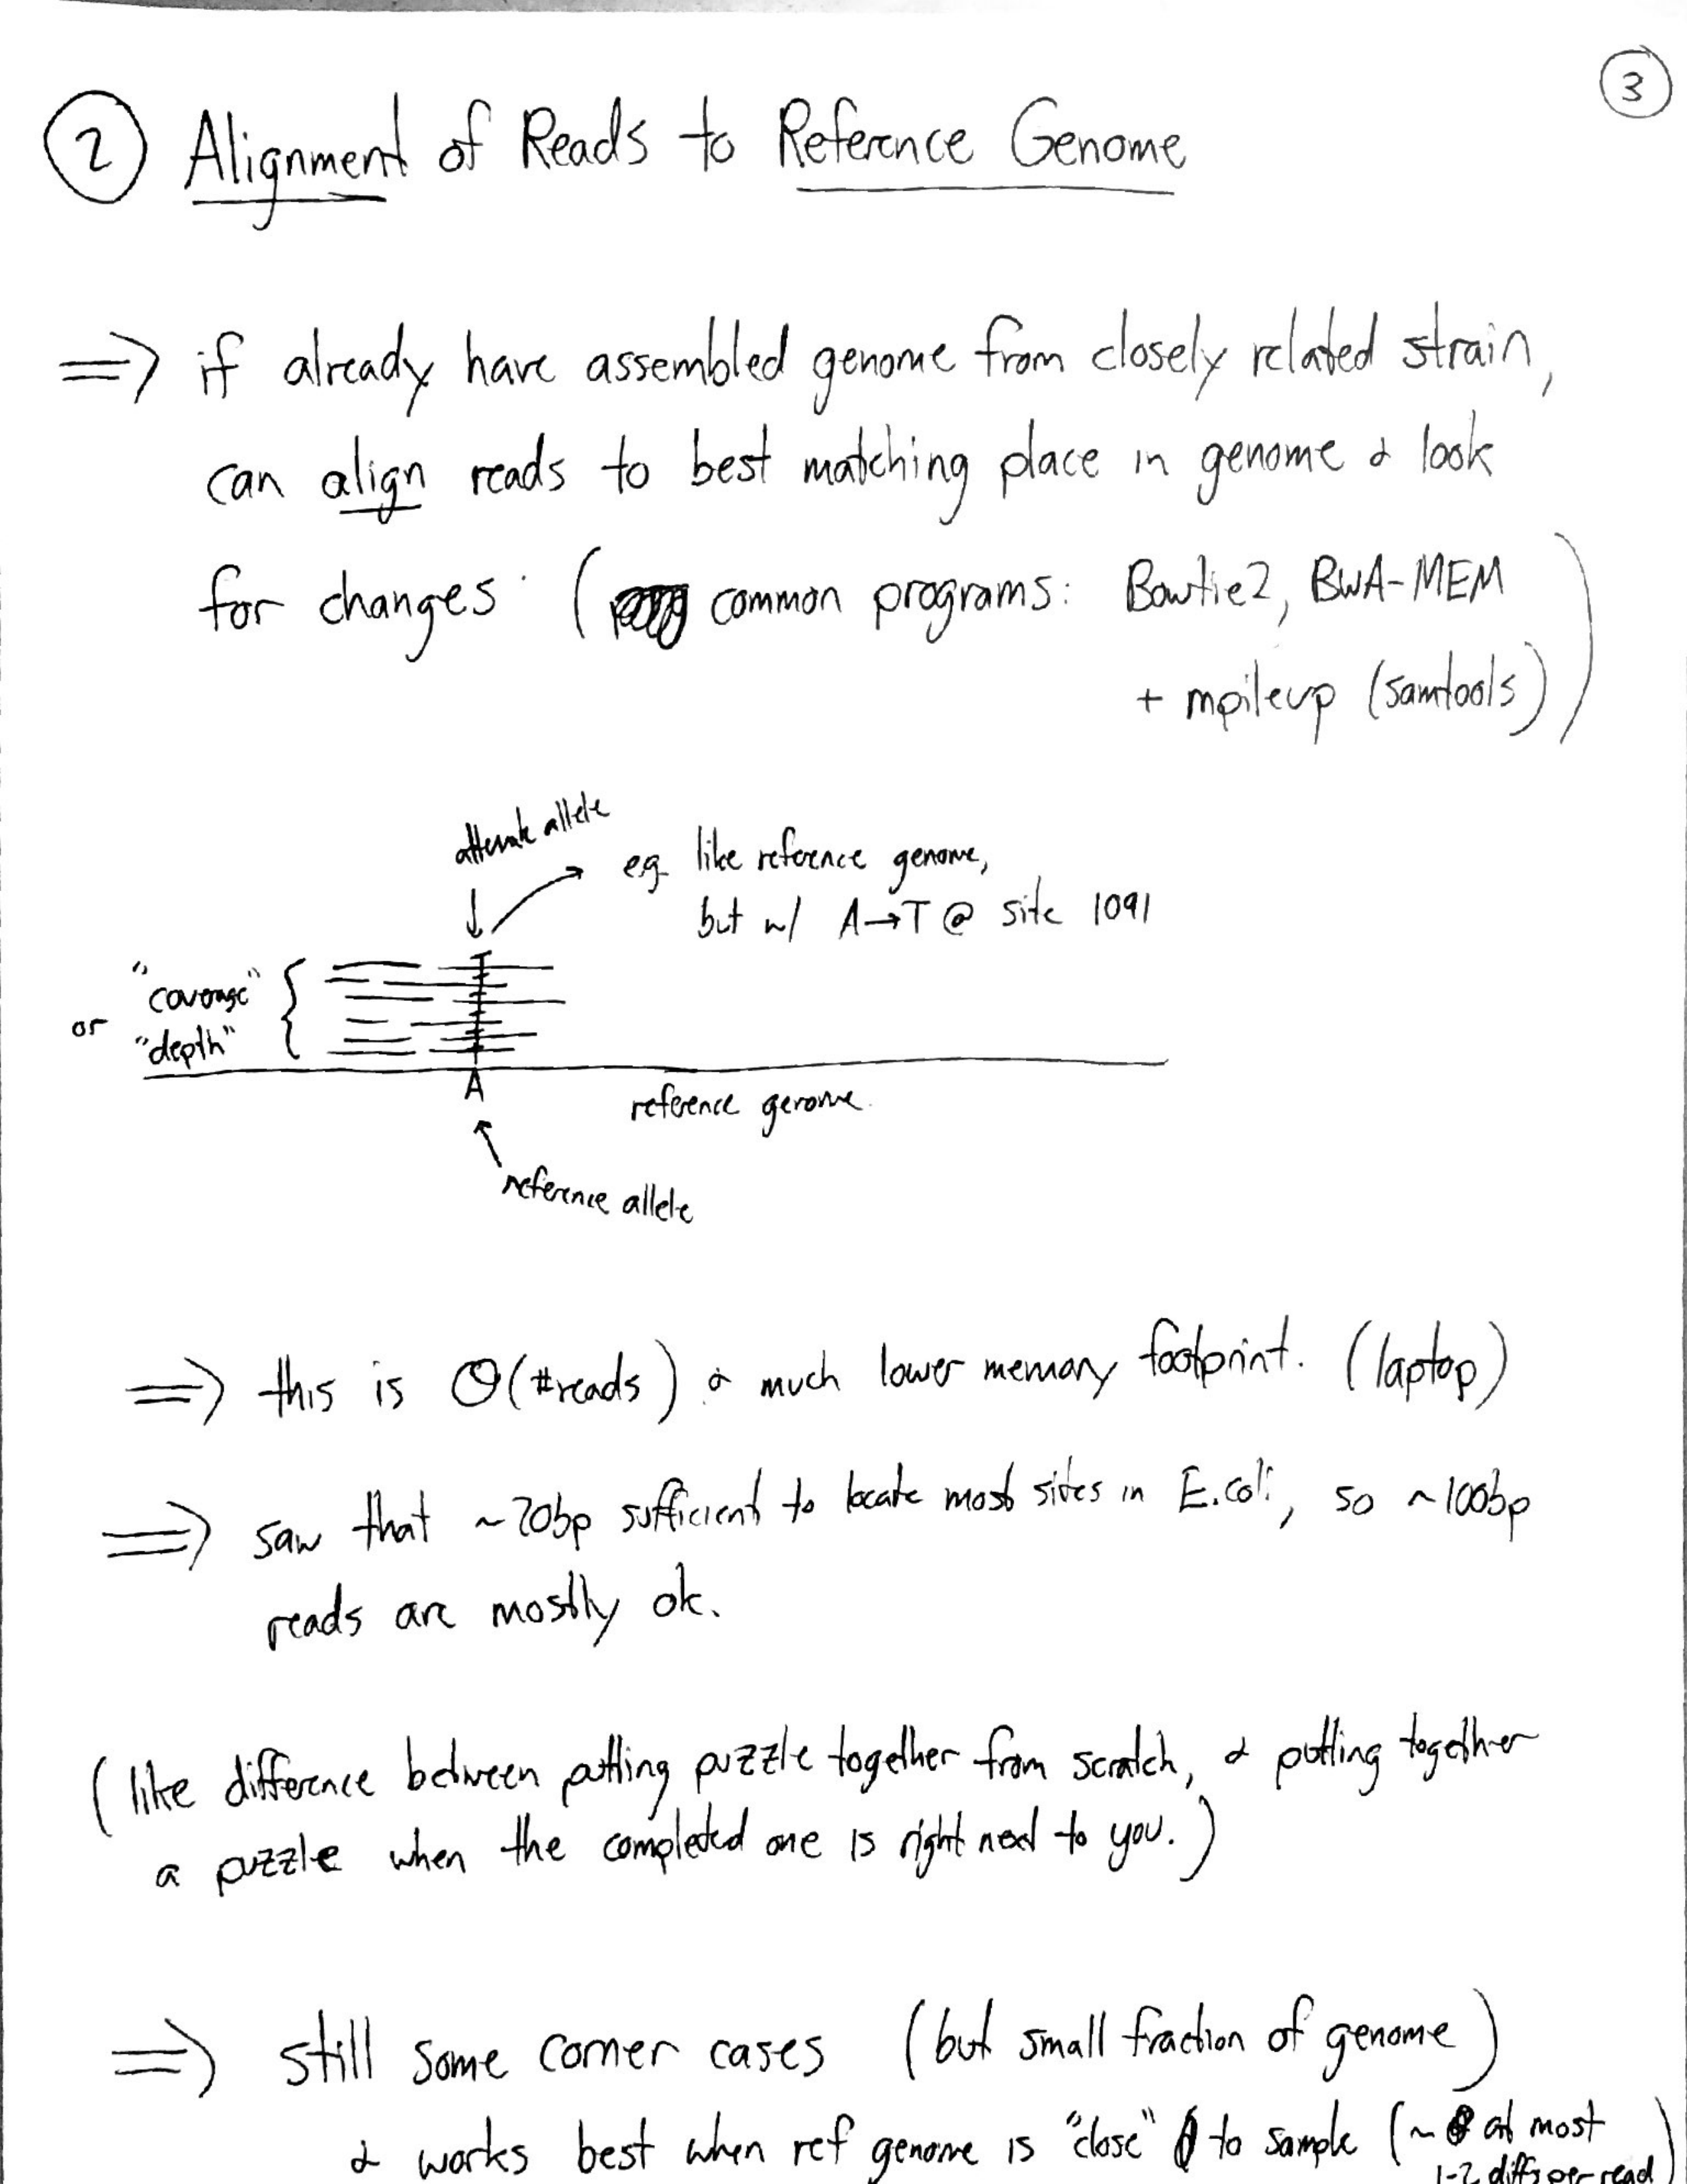 3
2 Alignment of Reads to Reference Genome
⇒ if already have assembled genome from closely related strain,
can align reads to best matching place in genome & look
for changes. ( common programs: Bowtie2, BWA-MEM
+ mpileup (samtools))
alternate allele
e.g. like reference genome,
but w/ A→T @ site 1091
"coverage"
or "depth"
T
A
reference genome.
reference allele
⇒ this is O(#reads) & much lower memory footprint. (laptop)
⇒ saw that ~20bp sufficient to locate most sites in E.coli, so ~100bp
reads are mostly ok.
(like difference between putting puzzle together from scratch, & putting together
a puzzle when the completed one is right next to you.)
⇒ still some corner cases (but small fraction of genome)
& works best when ref genome is "close" to sample (~ at most
1-2 diffs per read)